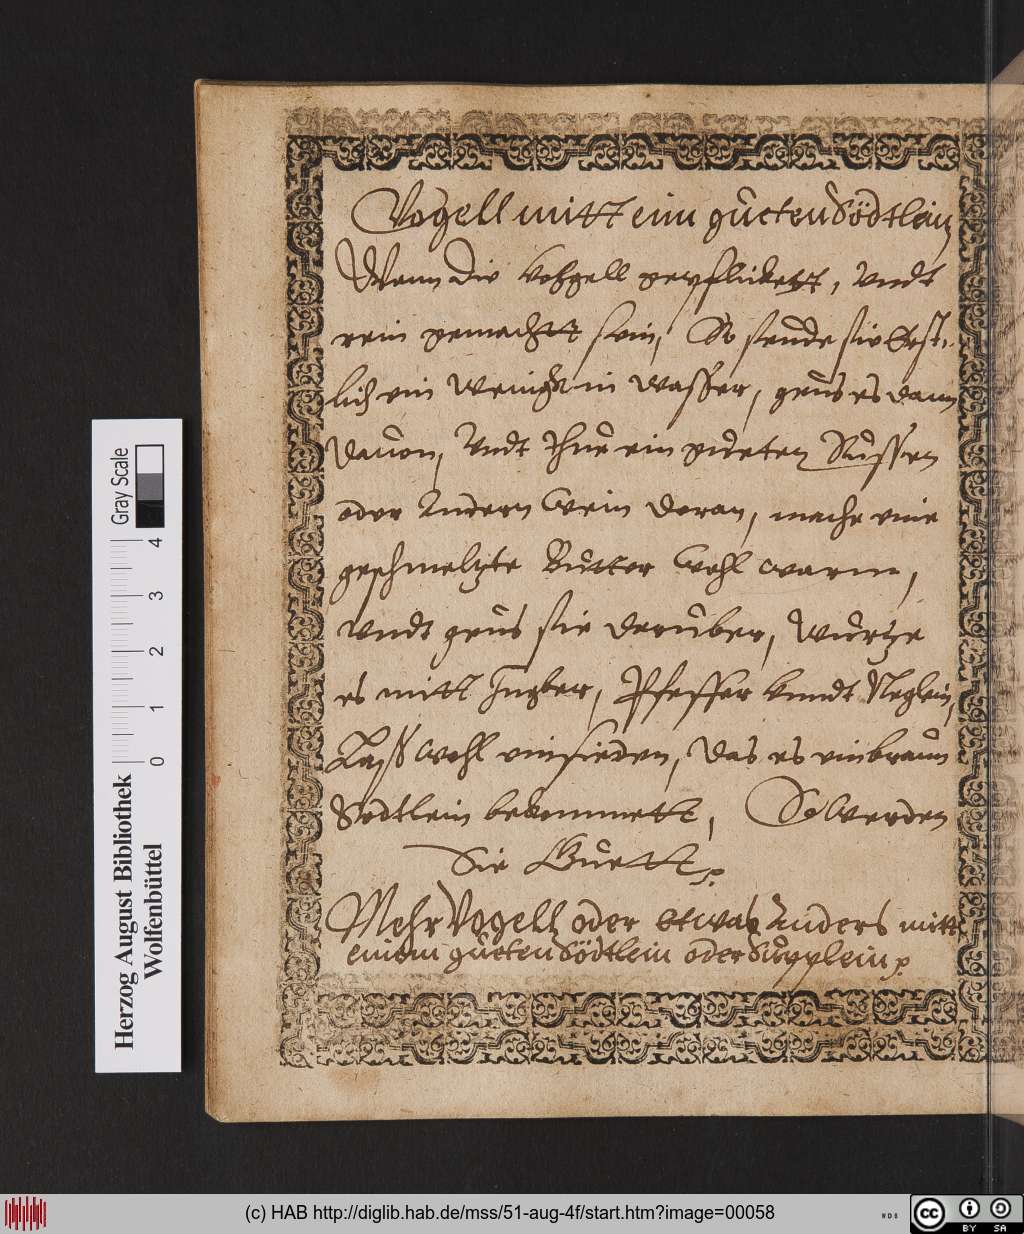 Vogell mitt eim gûeten Södtlein
Wann die Vohgell gepflückett, Vndt
rein gemachtt sein, So seude sie Erst-
lich ein wenigh in wasser, geus es dann
dauon, Vndt thue ein gueten Süssen
oder Andern Wein daran, mache eine
geschmeltzte Butter Wohl warm,
vndt geus sie darûber, Wûrtze
es mitt Jngber, Pfeffer Vnndt Neglein,
Lass wohl einsieden, Das es ein braun
Södtlein bekommett, So Werden
Sie Guett
Mehr Vogell oder etwas Anders mitt
einem gûeten Södtlein oder Sûpplein
Herzog August Bibliothek
Wolfenbüttel
Gray Scale
0 1 2 3 4
(c) HAB http://diglib.hab.de/mss/51-aug-4f/start.htm?image=00058
WDB
cc BY SA